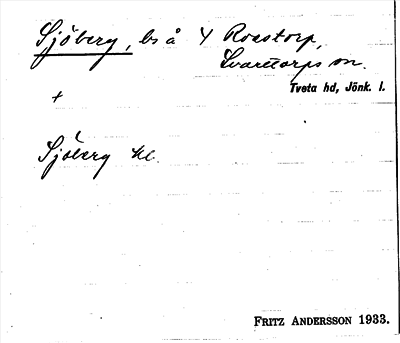 Sjöberg, bs å 4 Roastorp,
Svarttorps sn.
Tveta hd, Jönk. l.
+
Sjöberg kl.
FRITZ ANDERSSON 1933.